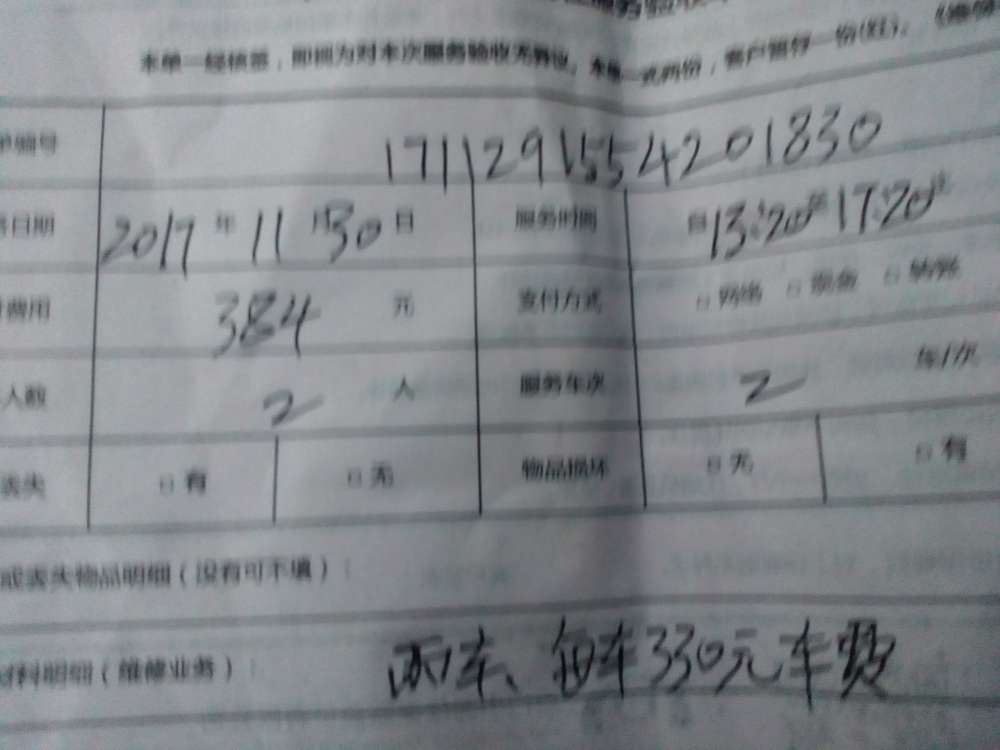 本单一经核签，即视为对本次服务验收无异议。本单一式两份，客户暂存一份(红)。
单编号 1711291554201830
务日期 2017 年 11 月 30 日 服务时间 自 13:20 至 17:20 止
费用 384 元 支付方式 □ 网络 □ 现金 □ 转账
人数 2 人 服务车次 2 车/次
丢失 □ 有 □ 无 物品损坏 □ 无 □ 有
或丢失物品明细（没有可不填）：
材料明细（维修业务）： 两车、每车330元车费